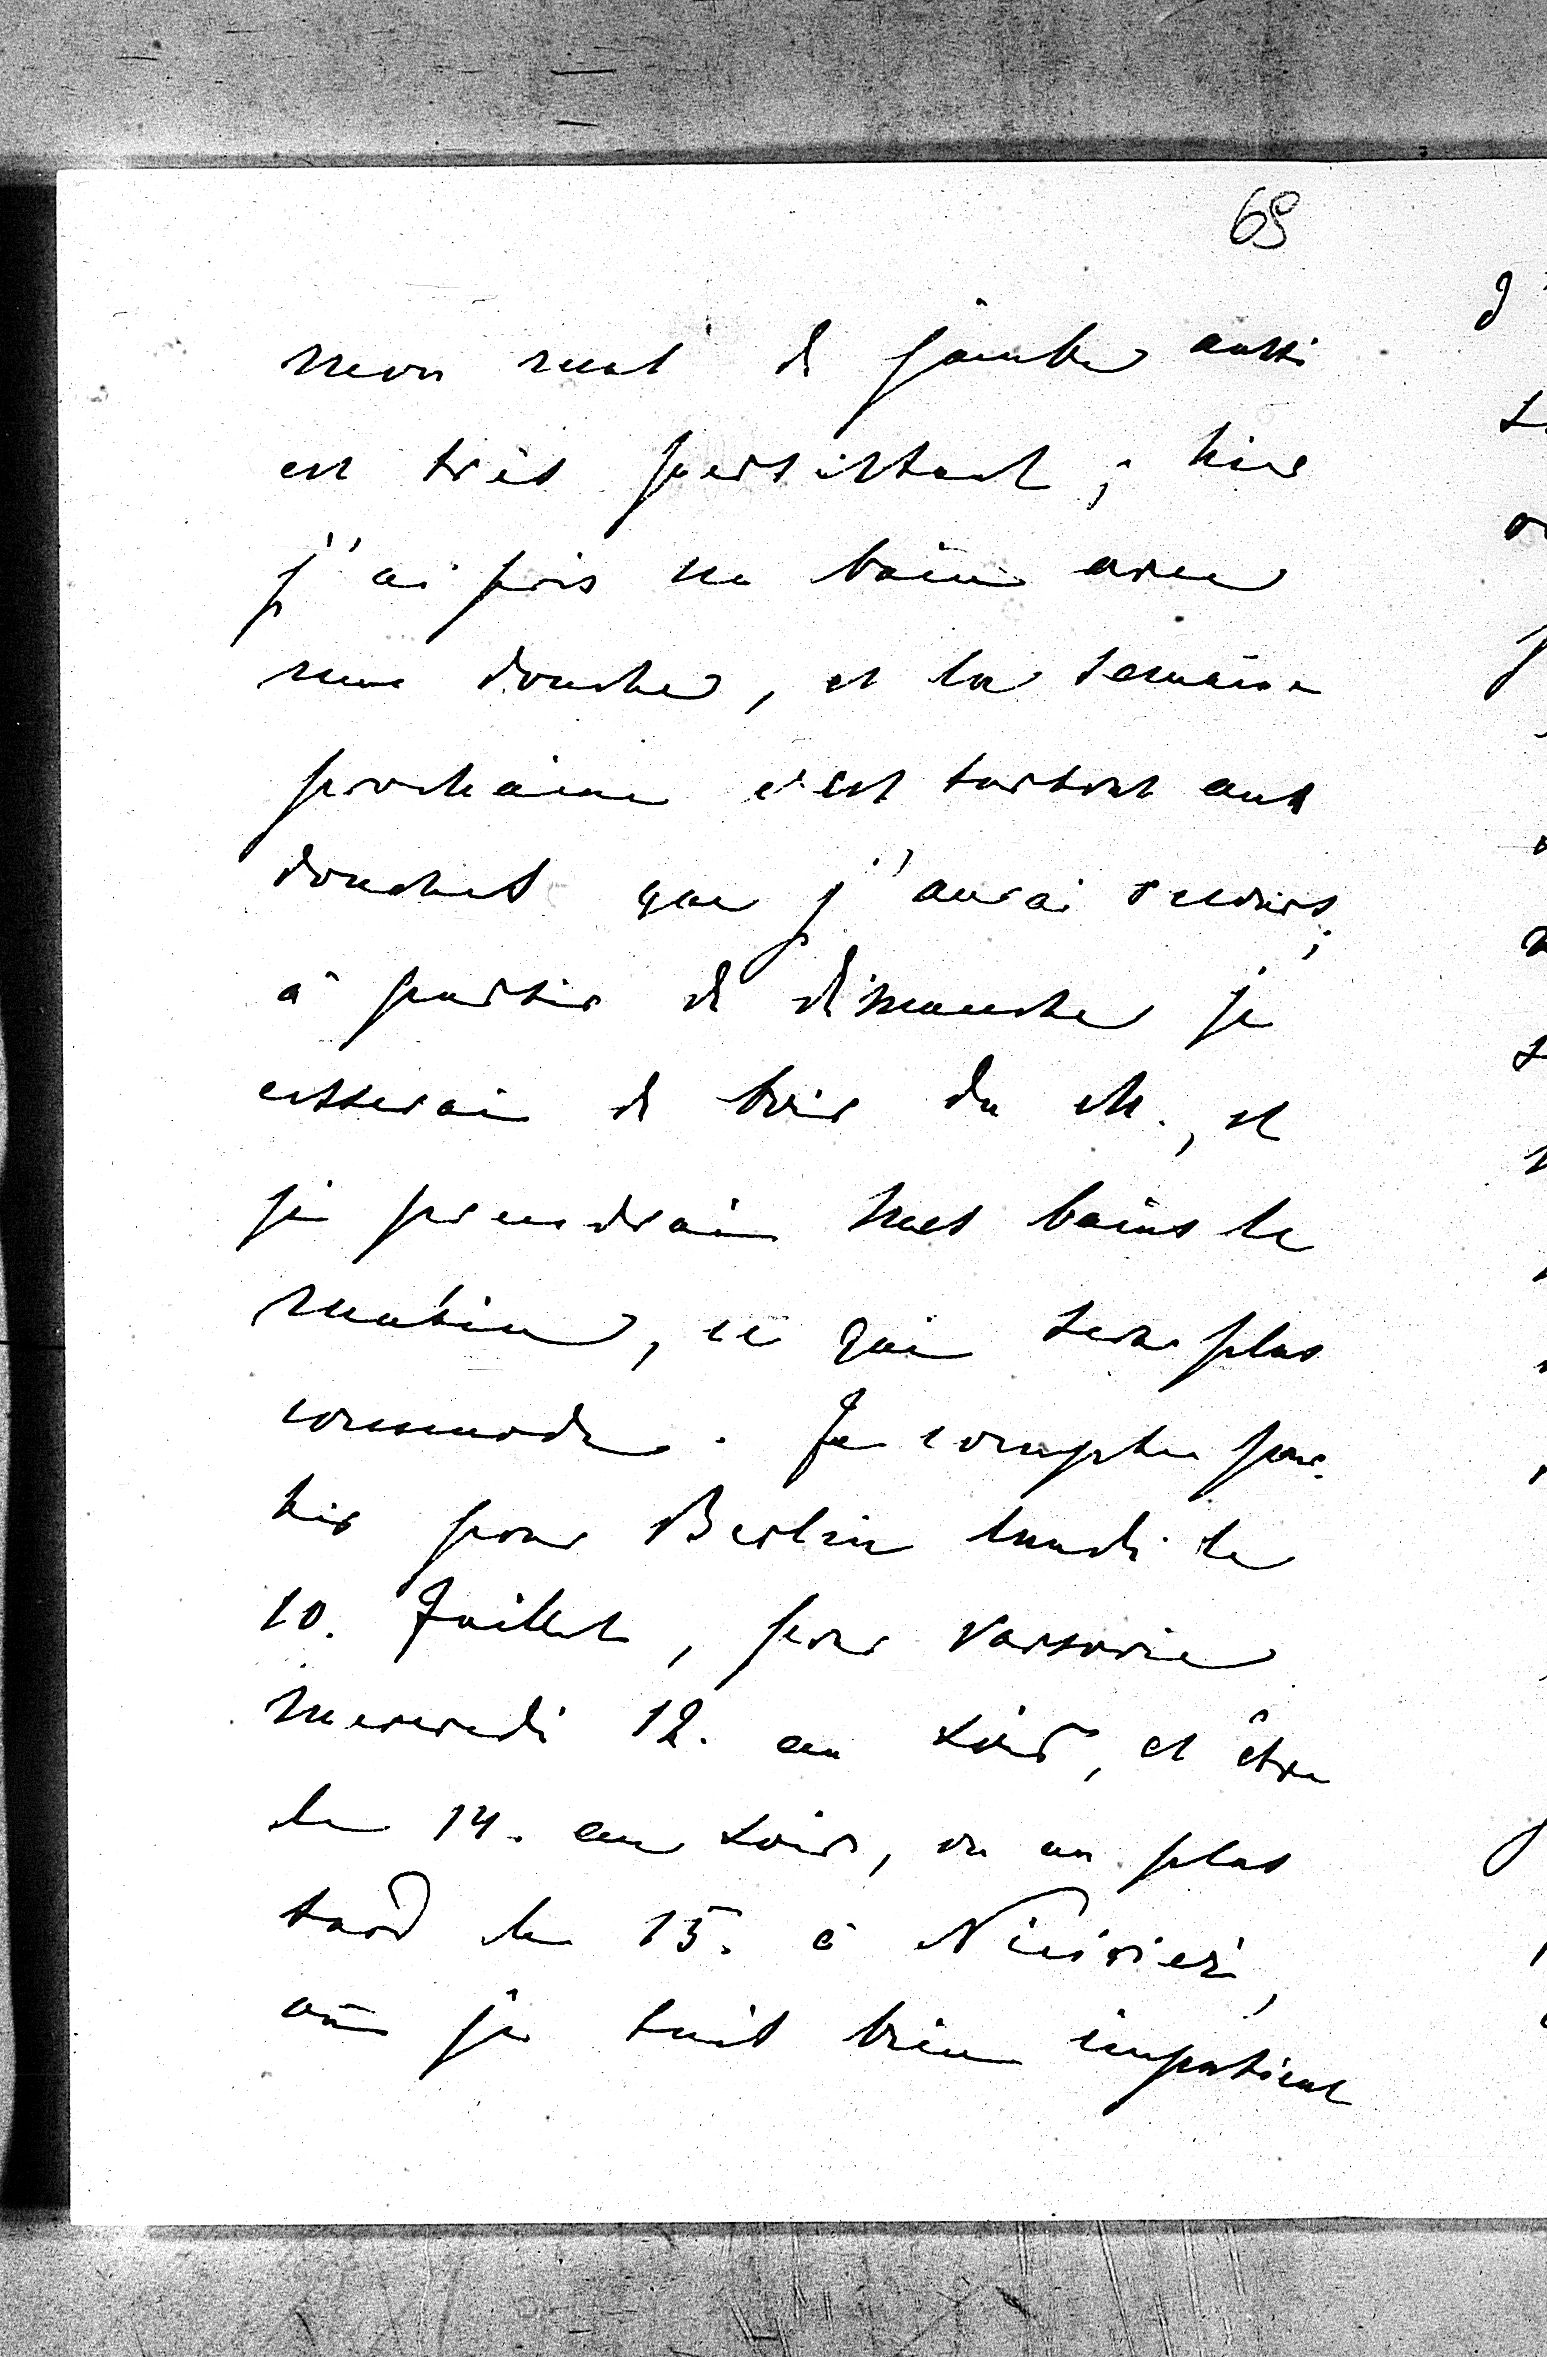 68
mon mal de jambe aussi
est très persistant ; hier
j'ai pris un bain avec
une douche, et la semaine
prochaine c'est surtout aux
douches que j'aurai recours ;
à partir de dimanche je
cesserai de boir du M., et
je prendrai mes bains le
matin, ce qui sera plus
commode. Je compte par-
tir pour Berlin lundi le
10. Juillet, pour Varsovie
mercredi 12. au soir, et être
le 14. au soir, ou au plus
tard le 15. à
où je suis bien impatient